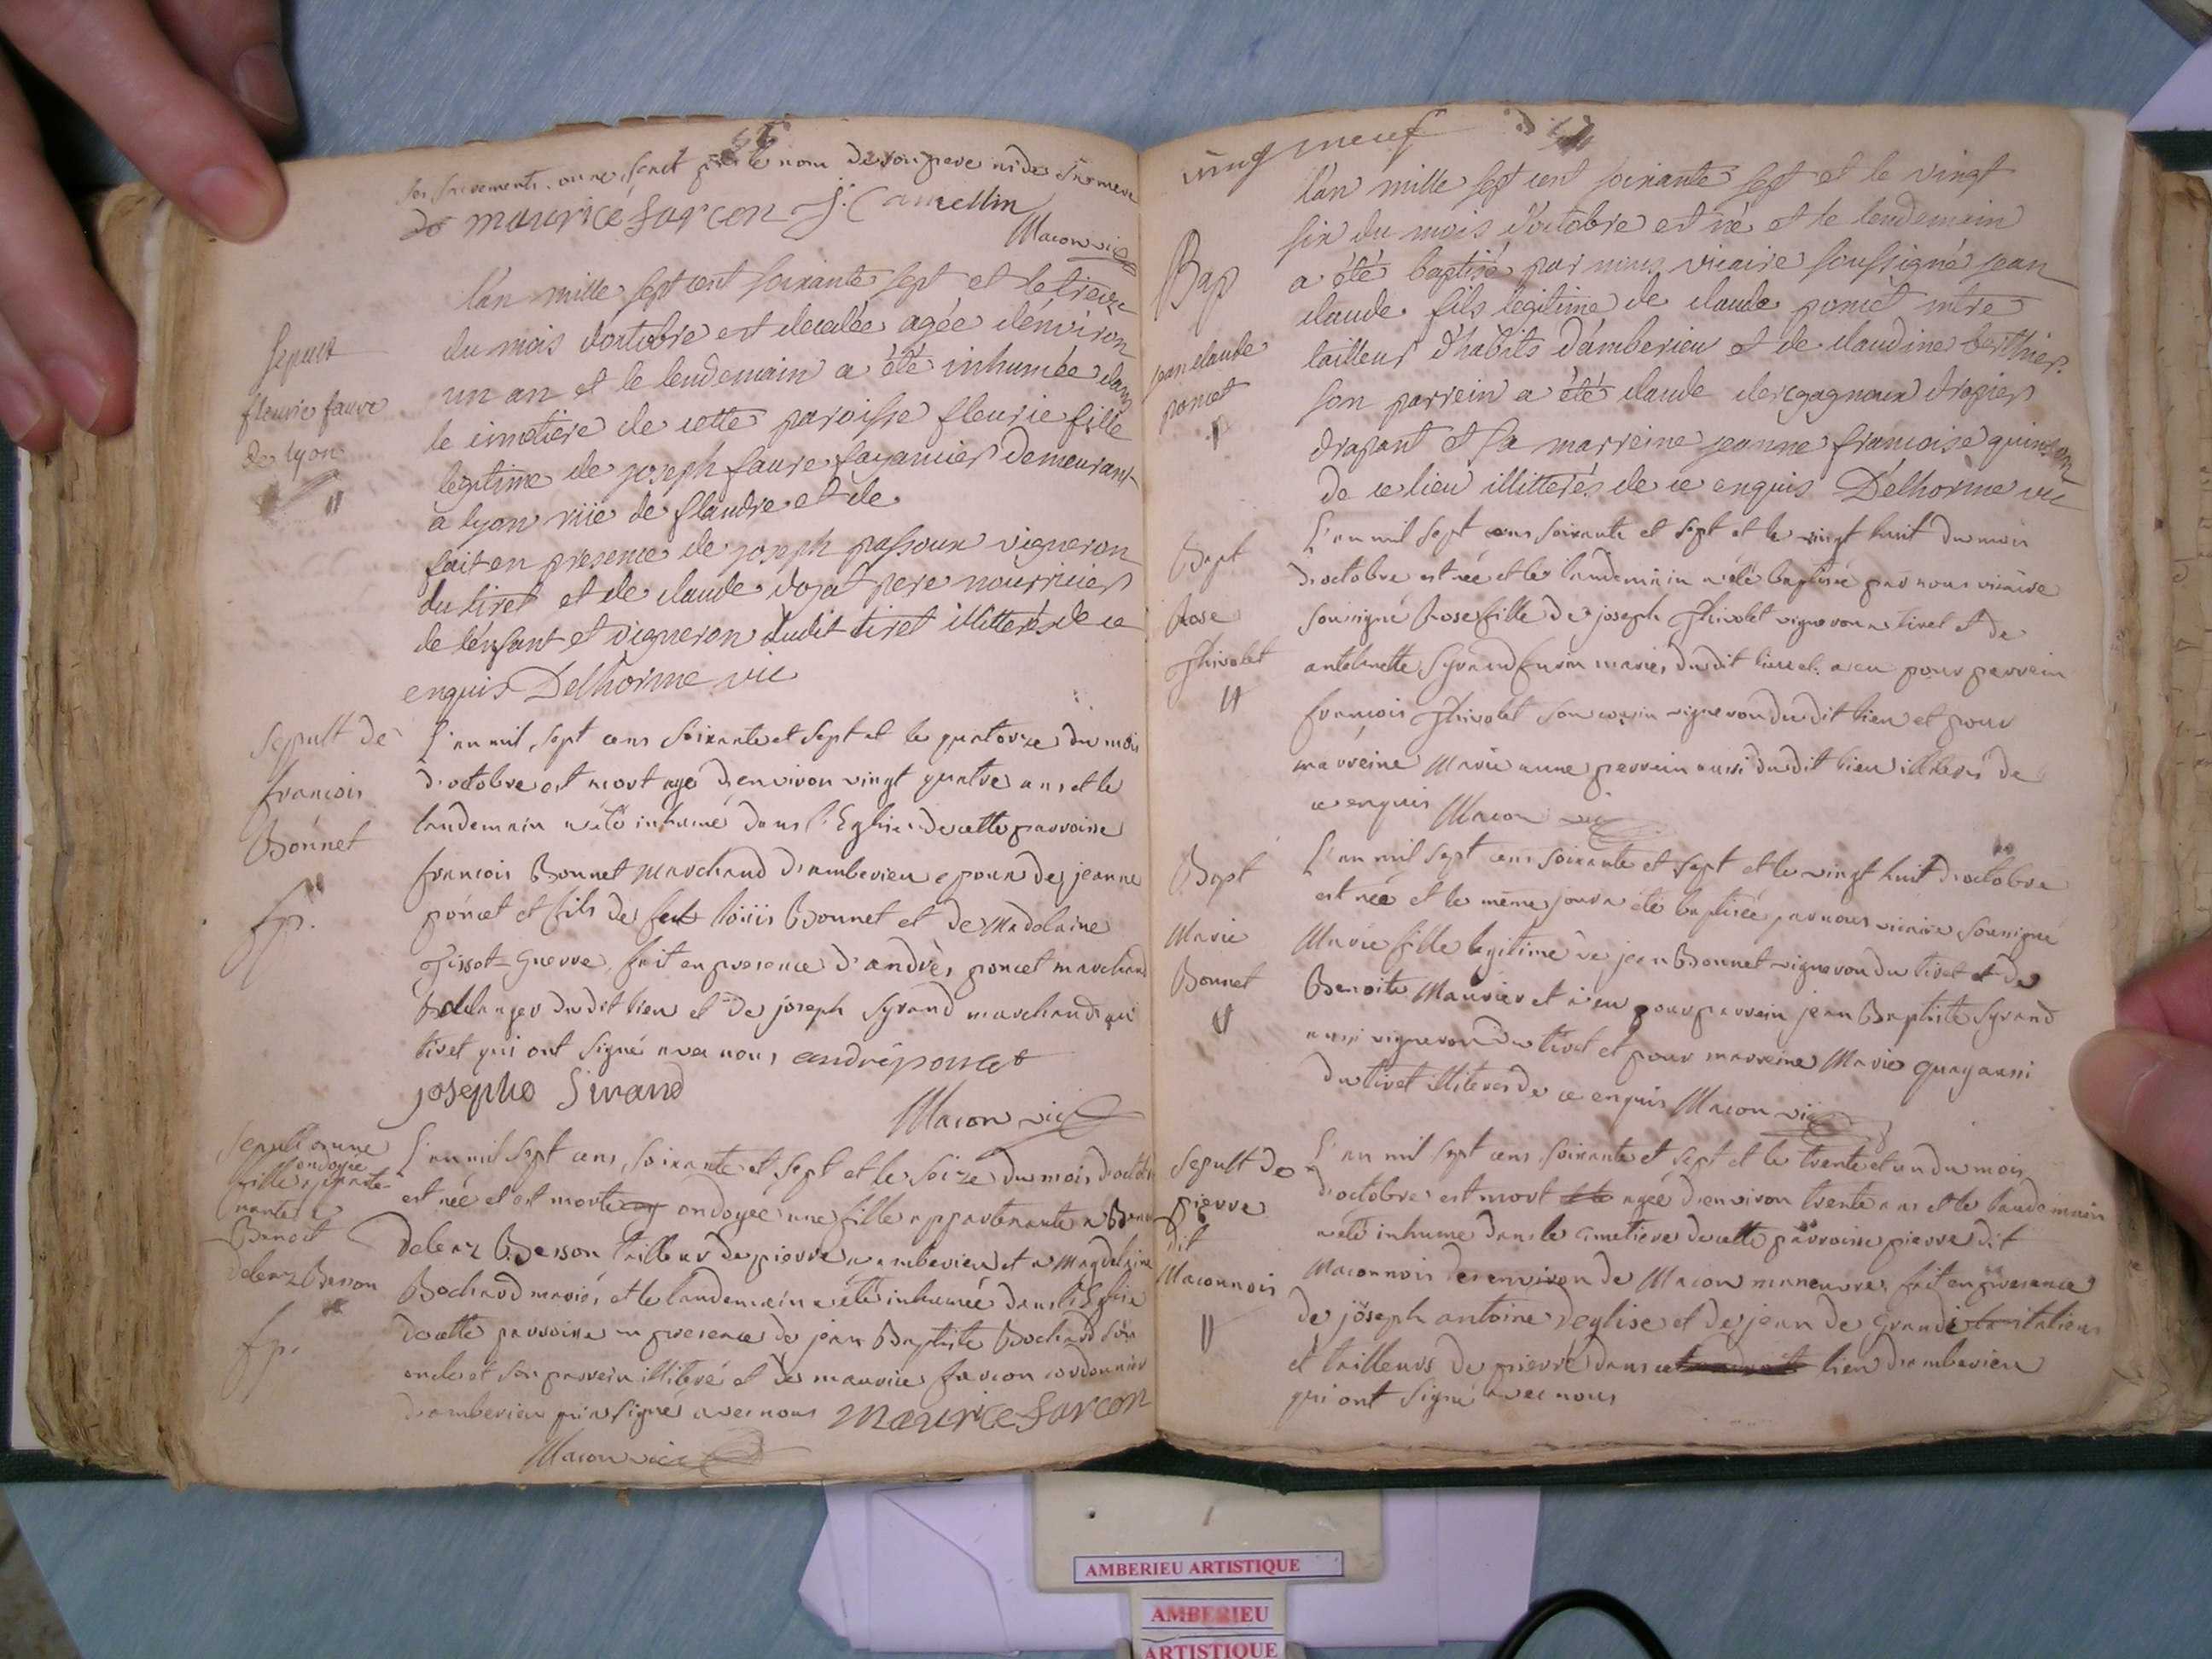 ses sacrements. on ne scait pas le nom de son pere ni de sa mere
maurice farcon J. Camellin
Macon vic
Sepult
fleurie faure
de lyon
l'an mille sept cent soixante sept et le treize
du mois d'octobre est decedée agée d'environ
un an et le lendemain a été inhumée dans
le cimetiere de cette paroisse fleurie fille
legitime de joseph faure fayancier demeurant
a lyon rüe de flandre et de
fait en presence de joseph passoux vigneron
du tiret et de claude dojat pere nourricier
de l'enfant et vigneron dudit tiret illitterés de ce
enquis Delhorme vic
Sepult de
francois
Bonnet
fp.
L'an mil sept cens soixante et sept et le quatorze du mois
d'octobre est mort agé d'environ vingt quatre ans et le
landemain a été inhumé dans l'Eglise de cette parroisse
francois Bonnet marchand d'amberieu epoux de jeanne
poncet et fils de feu loüis Bonnet et de Madelaine
Tissot-Guerre, fait en presence d'andrè poncet marchand
Boulanger dudit lieu et de joseph Syrand marchand au
tiret qui ont signé avec nous andré poncet
josephe Sirand
Macon vic
Sepult d'une
fille ondoyée
apparte-
nante a
Benoit
debenz Besson
fp.
L'an mil sept cens soixante et sept et le seize du mois d'octobre
est née et est morte ondoyée une fille appartenante a Benoit
debenz Besson tailleur de pierre a amberieu et a Magdelaine
Bochard mariés, et le landemain a été inhumée dans l'Eglise
de cette parroisse en presence de jean Baptiste Bochard son
oncle et son parrein illiteré et de maurice farcon cordonnier
d'amberieu qui a signé avec nous maurice farcon
Macon vic
vingt neuf
Bap
jean claude
poncet
l'an mille sept cent soixante sept et le vingt
six du mois d'octobre est né et le lendemain
a été baptisé par nous vicaire soussigné jean
claude fils légitime de claude poncet mtre
tailleur d'habits d'amberieu et de claudine berthier
son parrein a été claude dercgagnaux drapier
drapant et sa marreine jeanne francoise quinson
de ce lieu illitterés de ce enquis Delhorme vic
Bapt
Rose
Thivolet
L'an mil sept cens soixante et sept et le vingt huit du mois
d'octobre est née et le landemain a été baptisée par nous vicaire
sousigné Rose fille de joseph Thivolet vigneron au tiret et de
antoinette Syrand mariés dudit tiret. a eu pour parrein
francois Thivolet son cousin vigneron dudit lieu et pour
marreine Marie anne perrein aussi dudit lieu illiterés de
ce enquis Macon vic
Bapt
Marie
Bonnet
L'an mil sept cens soixante et sept et le vingt huit d'octobre
est née et le même jour a été baptisée par nous vicaire sousigné
Marie fille legitime de jean Bonnet vigneron du tiret et de
Benoite Maurier et a eu pour parrein jean Baptiste Syrand
aussi vigneron du tiret et pour marreine Marie quay aussi
du tiret illiterés de ce enquis Macon vic
Sepult de
pierre
dit
Maconnois
L'an mil sept cens soixante et sept et le trente et un du mois
d'octobre est mort agé d'environ trente ans et le landemain
a été inhumé dans le cimetiere de cette parroisse pierre dit
Maconnois des environ de Macon maneuvre, fait en presence
de jöseph antoine deglise et de jean de Grandi italiens
et tailleurs de pierre dans ce lieu d'amberieu
qui ont signé avec nous
AMBERIEU ARTISTIQUE
AMBERIEU
ARTISTIQUE